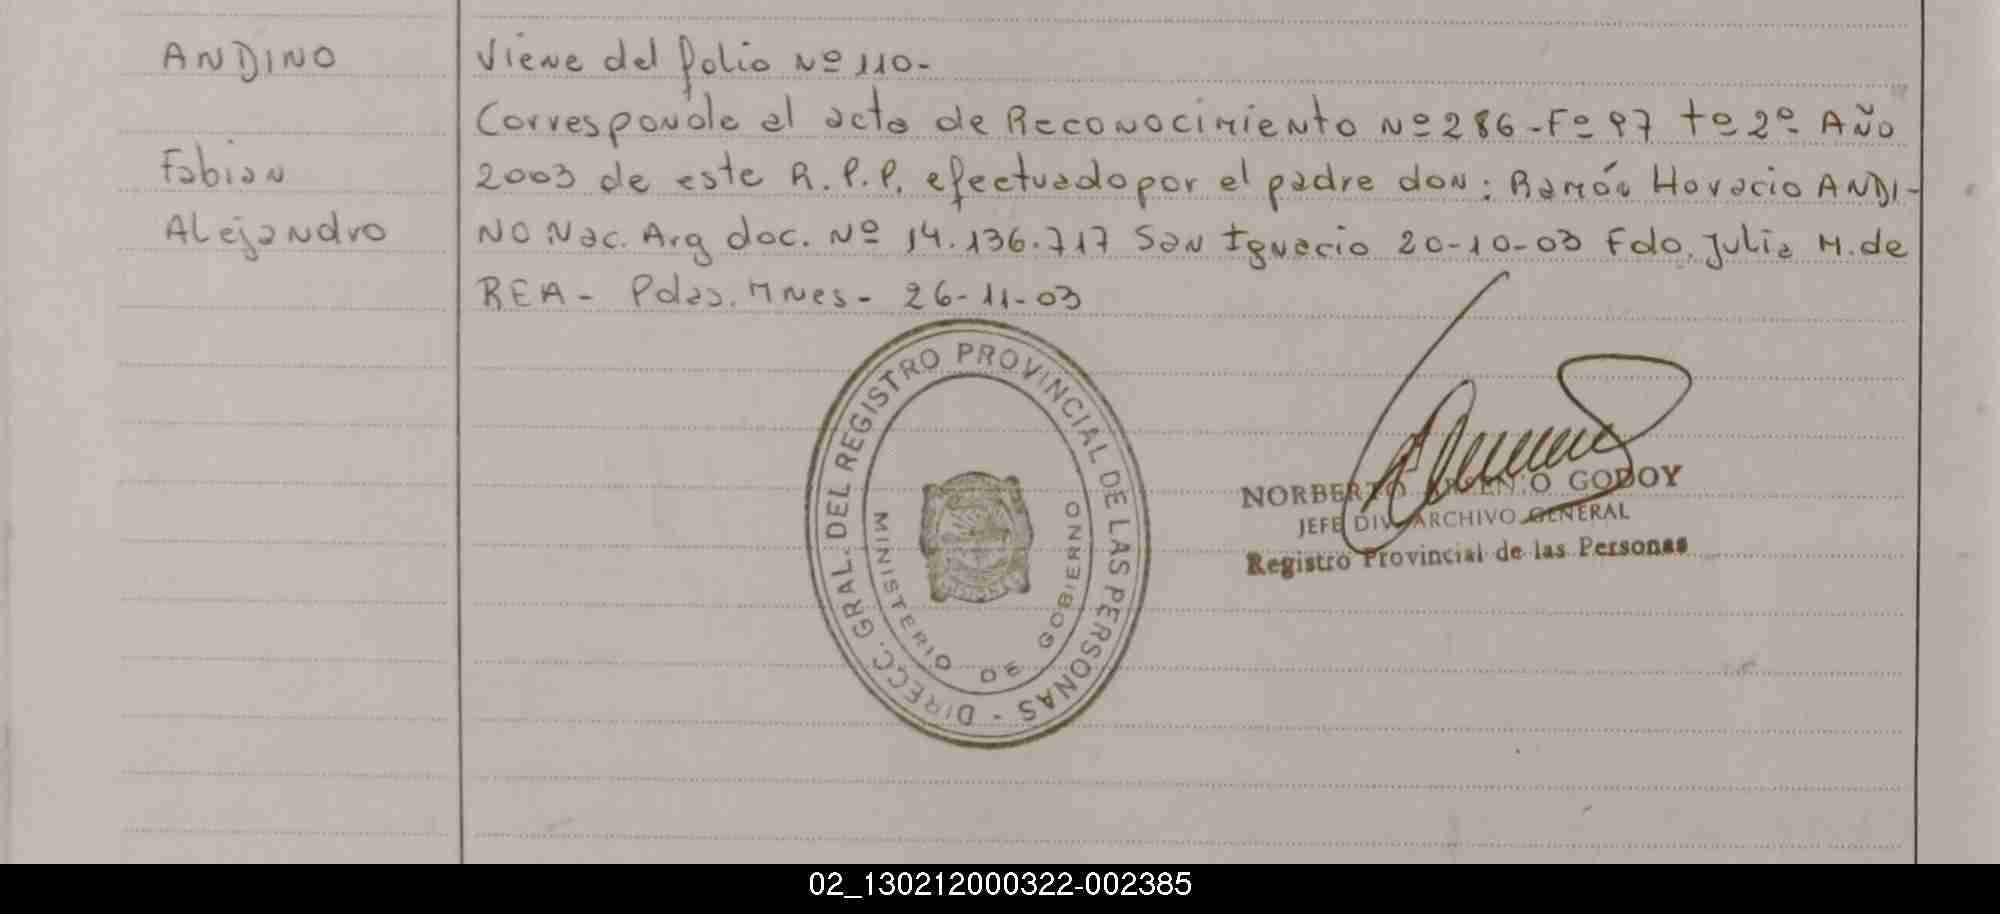 ANDINO
Fabian
Alejandro
Viene del folio Nº 110-
Corresponde al acta de Reconocimiento Nº 286-Fº 97 tº 2º Año
2003 de este R.P.P. efectuado por el padre don: Ramón Horacio ANDI-
NO Nac. Arg doc. Nº 14.136.717 San Ignacio 20-10-03 Fdo. Julia M. de
REA- Pdas. Mnes- 26-11-03
DIRECC. GRAL. DEL REGISTRO PROVINCIAL DE LAS PERSONAS -
MINISTERIO DE GOBIERNO
NORBERTO GODOY
JEFE DIV. ARCHIVO GENERAL
Registro Provincial de las Personas
02_130212000322-002385